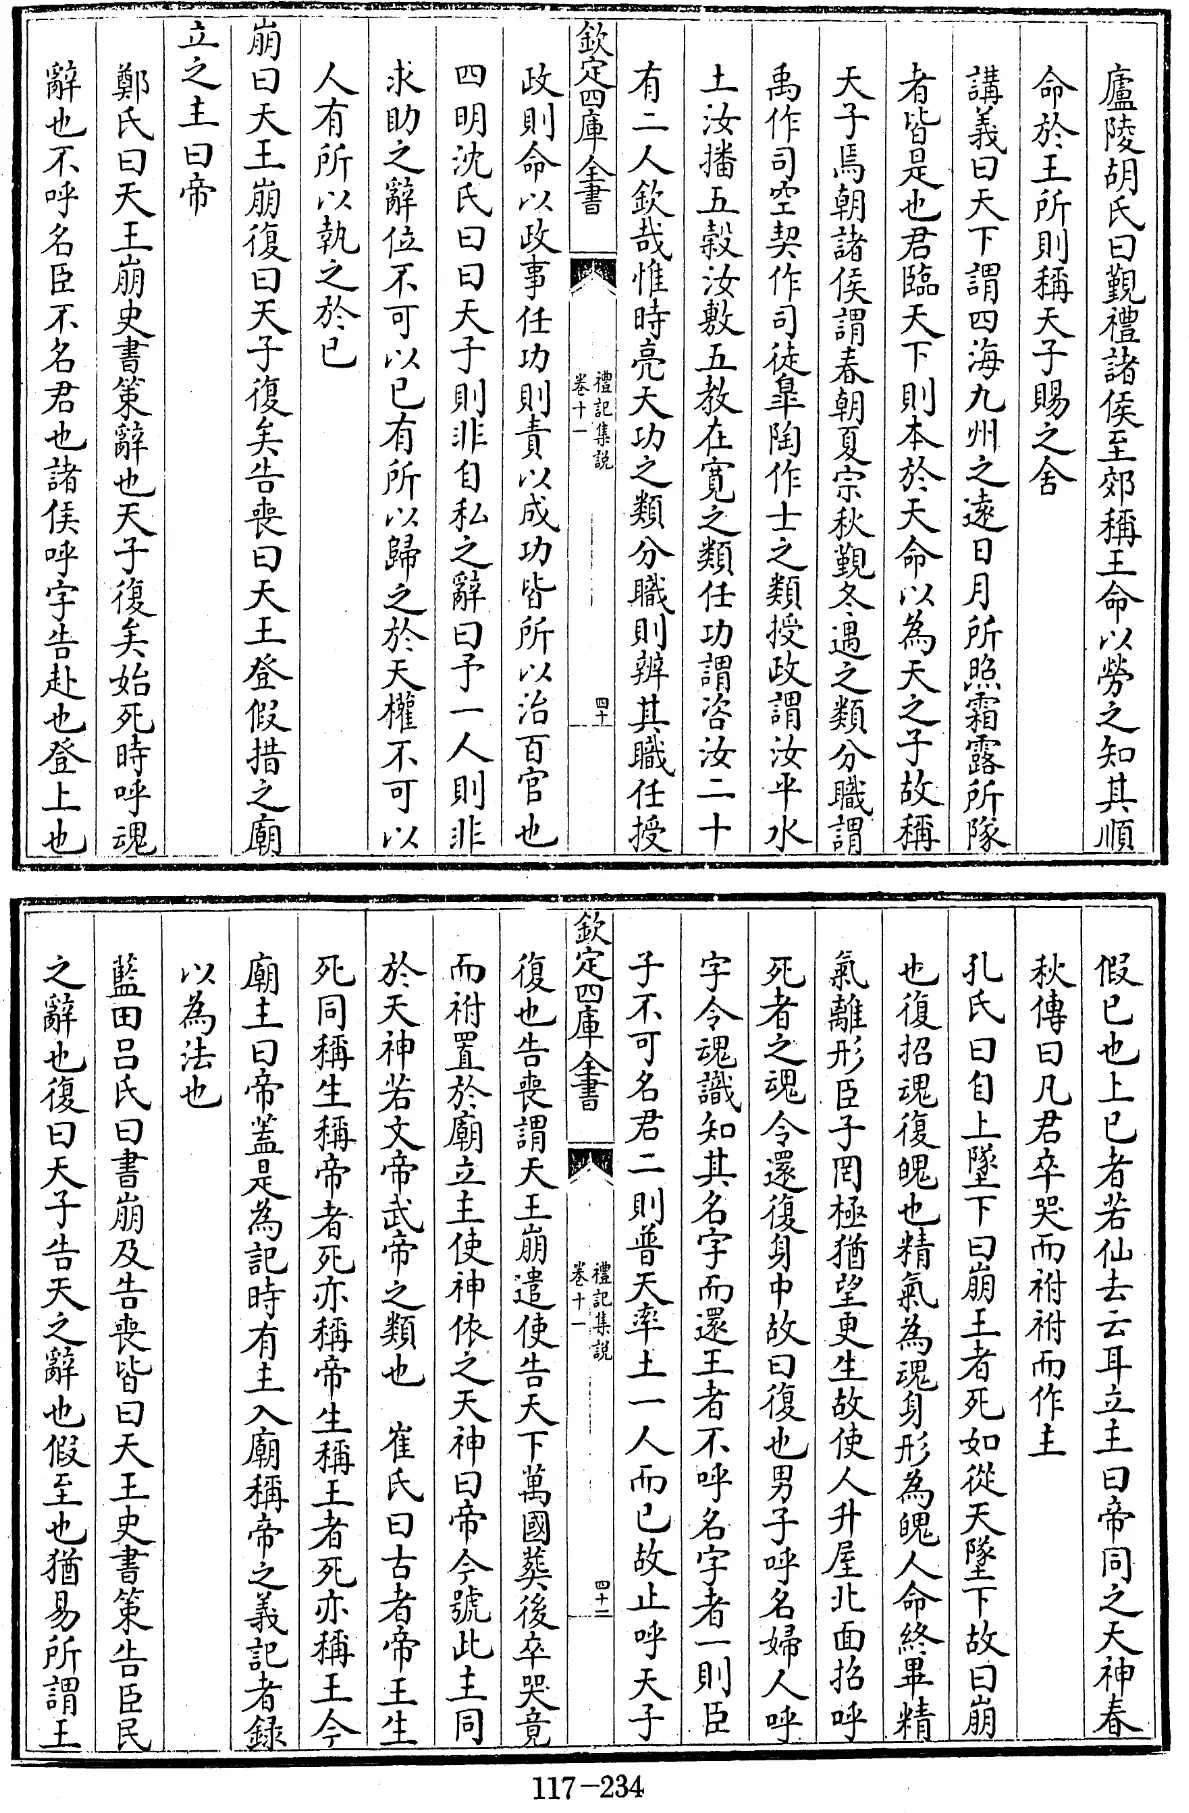 廬陵胡氏曰覲禮諸侯至郊稱王命以勞之知其順
命於王所則稱天子賜之舍
講義曰天下謂四海九州之遠日月所照霜露所隊
者皆是也君臨天下則本於天命以為天之子故稱
天子焉朝諸侯謂春朝夏宗秋覲冬遇之類分職謂
禹作司空契作司徒臯陶作士之類授政謂汝平水
土汝播五穀汝敷五教在寛之類任功謂咨汝二十
有二人欽哉惟時亮天功之類分職則辨其職任授
欽定四庫全書
禮記集説
卷十一
四十
政則命以政事任功則責以成功皆所以治百官也
四明沈氏曰曰天子則非自私之辭曰予一人則非
求助之辭位不可以已有所以歸之於天權不可以
人有所以執之於已
崩曰天王崩復曰天子復矣告喪曰天王登假措之廟
立之主曰帝
鄭氏曰天王崩史書策辭也天子復矣始死時呼魂
辭也不呼名臣不名君也諸侯呼字告赴也登上也
假已也上已者若仙去云耳立主曰帝同之天神春
秋傳曰凡君卒哭而祔祔而作主
孔氏曰自上墜下曰崩王者死如從天墜下故曰崩
也復招魂復魄也精氣為魂身形為魄人命終畢精
氣離形臣子罔極猶望更生故使人升屋北面招呼
死者之魂令還復身中故曰復也男子呼名婦人呼
字令魂識知其名字而還王者不呼名字者一則臣
子不可名君二則普天率土一人而已故止呼天子
欽定四庫全書
禮記集説
卷十一
四十一
復也告喪謂天王崩遣使告天下萬國葬後卒哭竟
而祔置於廟立主使神依之天神曰帝今號此主同
於天神若文帝武帝之類也　崔氏曰古者帝王生
死同稱生稱帝者死亦稱帝生稱王者死亦稱王今
廟主曰帝蓋是為記時有主入廟稱帝之義記者録
以為法也
藍田呂氏曰書崩及告喪皆曰天王史書策告臣民
之辭也復曰天子告天之辭也假至也猶易所謂王
117-234